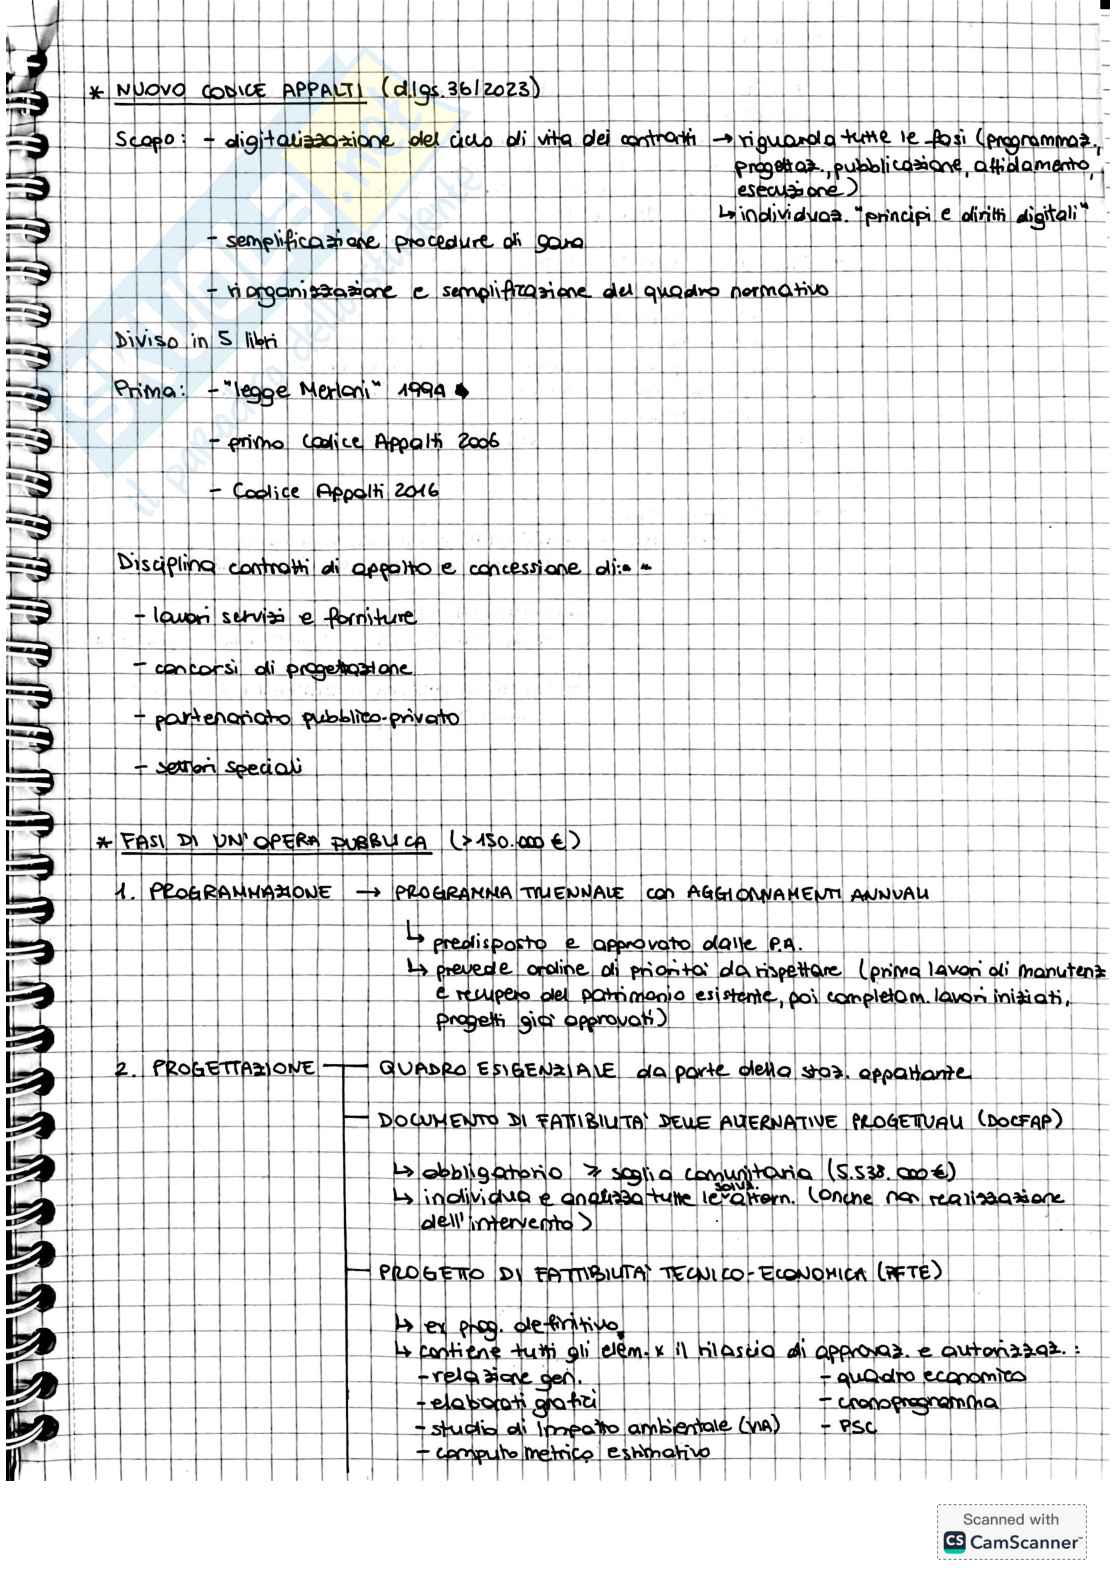 * NUOVO CODICE APPALTI (d.lgs. 36/2023)
Scopo: - digitalizzazione del ciclo di vita dei contratti → riguarda tutte le fasi (programmaz.,
progettaz., pubblicazione, affidamento,
esecuzione)
↳ individuaz. "principi e diritti digitali"
- semplificazione procedure di gara
- riorganizzazione e semplificazione del quadro normativo
Diviso in 5 libri
Prima: - "legge Merloni" 1994
- primo Codice Appalti 2006
- Codice Appalti 2016
Disciplina contratti di appalto e concessione di:
- lavori servizi e forniture
- concorsi di progettazione
- partenariato pubblico-privato
- settori speciali
* FASI DI UN'OPERA PUBBLICA (>150.000 €)
1. PROGRAMMAZIONE → PROGRAMMA TRIENNALE con AGGIORNAMENTI ANNUALI
↳ predisposto e approvato dalle P.A.
↳ prevede ordine di priorità da rispettare (prima lavori di manutenz
e recupero del patrimonio esistente, poi completam. lavori iniziati,
progetti già approvati)
2. PROGETTAZIONE — QUADRO ESIGENZIALE da parte della staz. appaltante
— DOCUMENTO DI FATTIBILITA' DELLE ALTERNATIVE PROGETTUALI (DOCFAP)
↳ obbligatorio ≥ soglia comunitaria (5.538.000€)
↳ individua e analizza tutte le soluz. altern. (anche non realizzazione
dell'intervento)
— PROGETTO DI FATTIBILITA' TECNICO-ECONOMICA (PFTE)
↳ ex prog. definitivo
↳ contiene tutti gli elem. x il rilascio di approvaz. e autorizzaz. :
- relazione gen. - quadro economico
- elaborati grafici - cronoprogramma
- studio di impatto ambientale (VIA) - PSC
- computo metrico estimativo
Scanned with
CS CamScanner